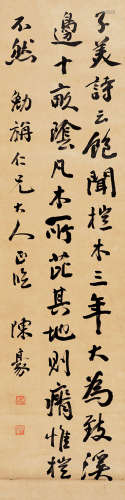 子美詩云飽聞榿木三年大為致溪
邊十畝陰凡木所芘其地則瘠惟榿
不然 勉旃仁兄大人正臨 陳豪